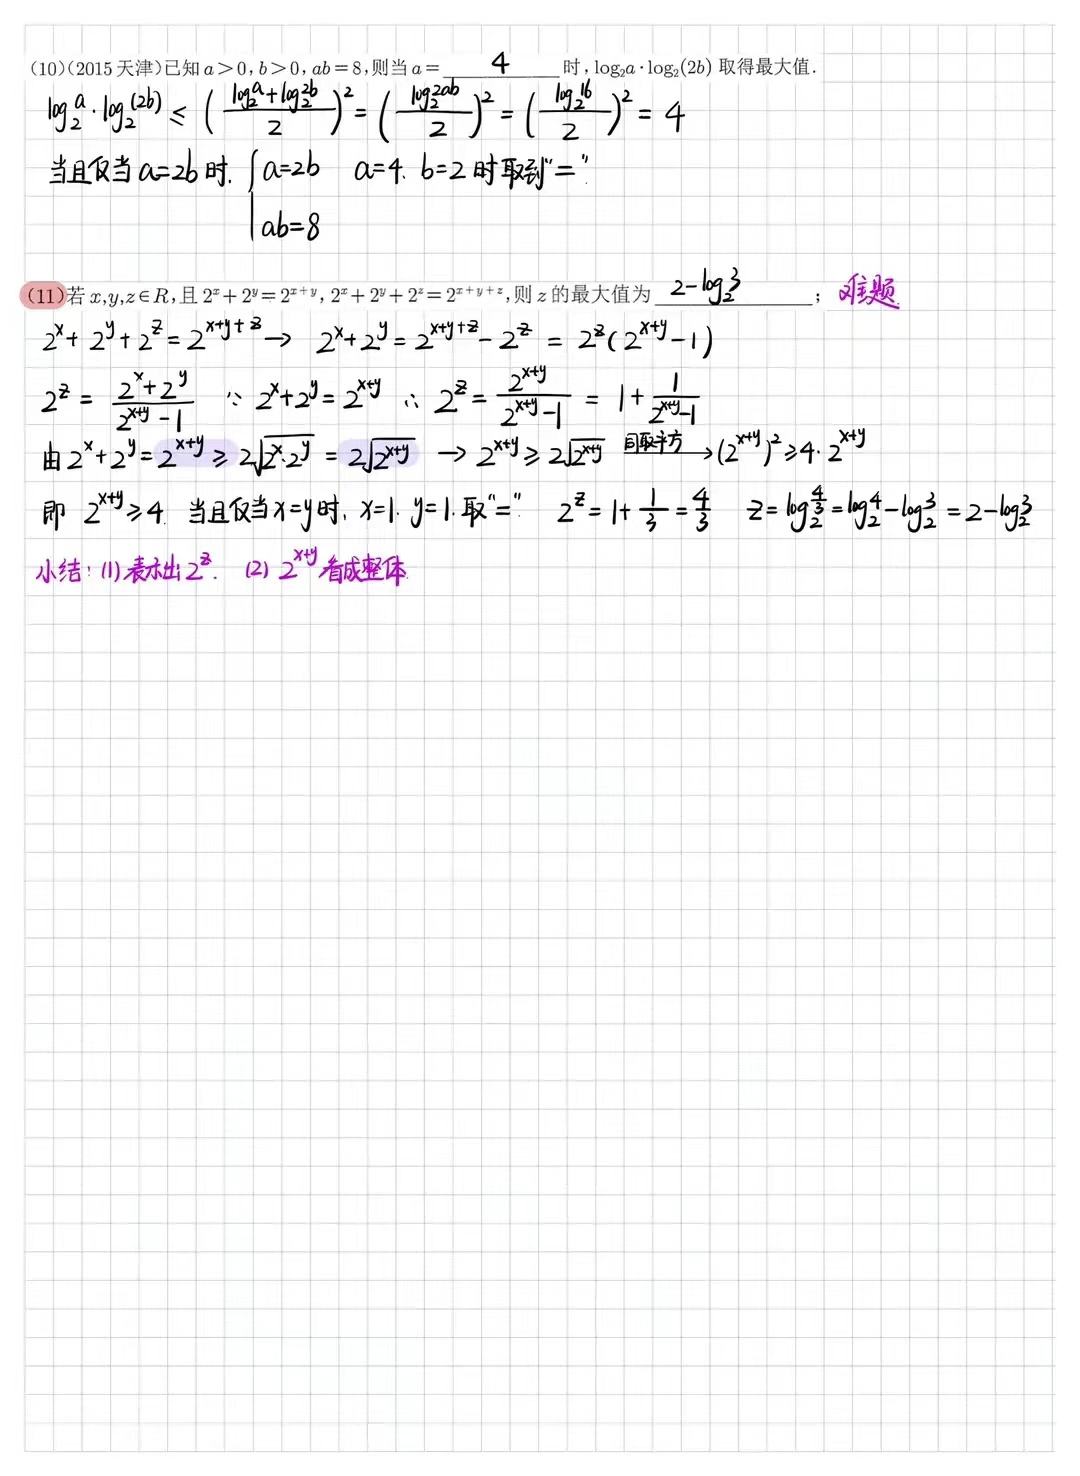 (10)(2015天津)已知a>0,b>0,ab=8,则当a= 4 时,log₂a·log₂(2b)取得最大值.
log₂a·log₂(2b) ≤ ((log₂a+log₂2b)/2)² = (log₂2ab/2)² = (log₂16/2)² = 4
当且仅当a=2b时. {a=2b a=4. b=2时取到"="
ab=8
(11)若x,y,z∈R,且2ˣ+2ʸ=2ˣ⁺ʸ,2ˣ+2ʸ+2ᶻ=2ˣ⁺ʸ⁺ᶻ,则z的最大值为 2-log₂3 ; 难题
2ˣ+2ʸ+2ᶻ=2ˣ⁺ʸ⁺ᶻ → 2ˣ+2ʸ=2ˣ⁺ʸ⁺ᶻ-2ᶻ = 2ᶻ(2ˣ⁺ʸ-1)
2ᶻ = (2ˣ+2ʸ)/(2ˣ⁺ʸ-1) ∵ 2ˣ+2ʸ=2ˣ⁺ʸ ∴ 2ᶻ = 2ˣ⁺ʸ/(2ˣ⁺ʸ-1) = 1+1/(2ˣ⁺ʸ-1)
由2ˣ+2ʸ=2ˣ⁺ʸ≥2√(2ˣ·2ʸ) = 2√(2ˣ⁺ʸ) → 2ˣ⁺ʸ≥2√(2ˣ⁺ʸ) 同取平方→ (2ˣ⁺ʸ)²≥4·2ˣ⁺ʸ
即 2ˣ⁺ʸ≥4. 当且仅当x=y时, x=1. y=1.取"=" 2ᶻ=1+1/3=4/3 z=log₂4/3=log₂4-log₂3=2-log₂3
小结:(1)表示出2ᶻ. (2) 2ˣ⁺ʸ看成整体.